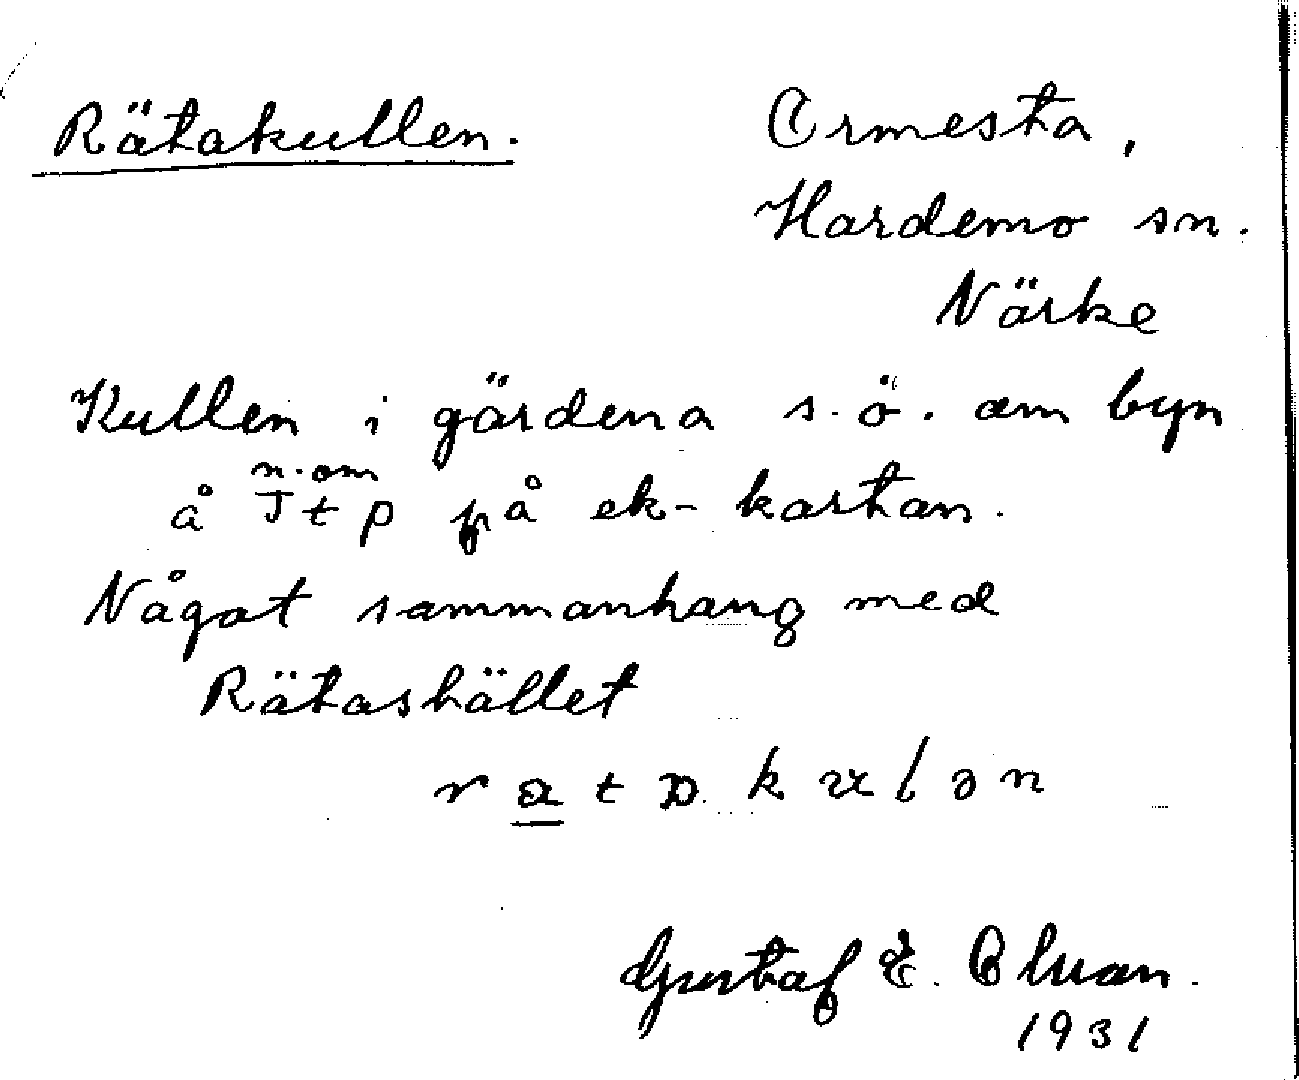 Rätakullen.
Ormesta,
Hardemo sn.
Närke
Kullen i gärdena s.ö. om byn
n. om
å Jtp på ek-kartan.
Något sammanhang med
Rätashället
Gustaf E.
1931